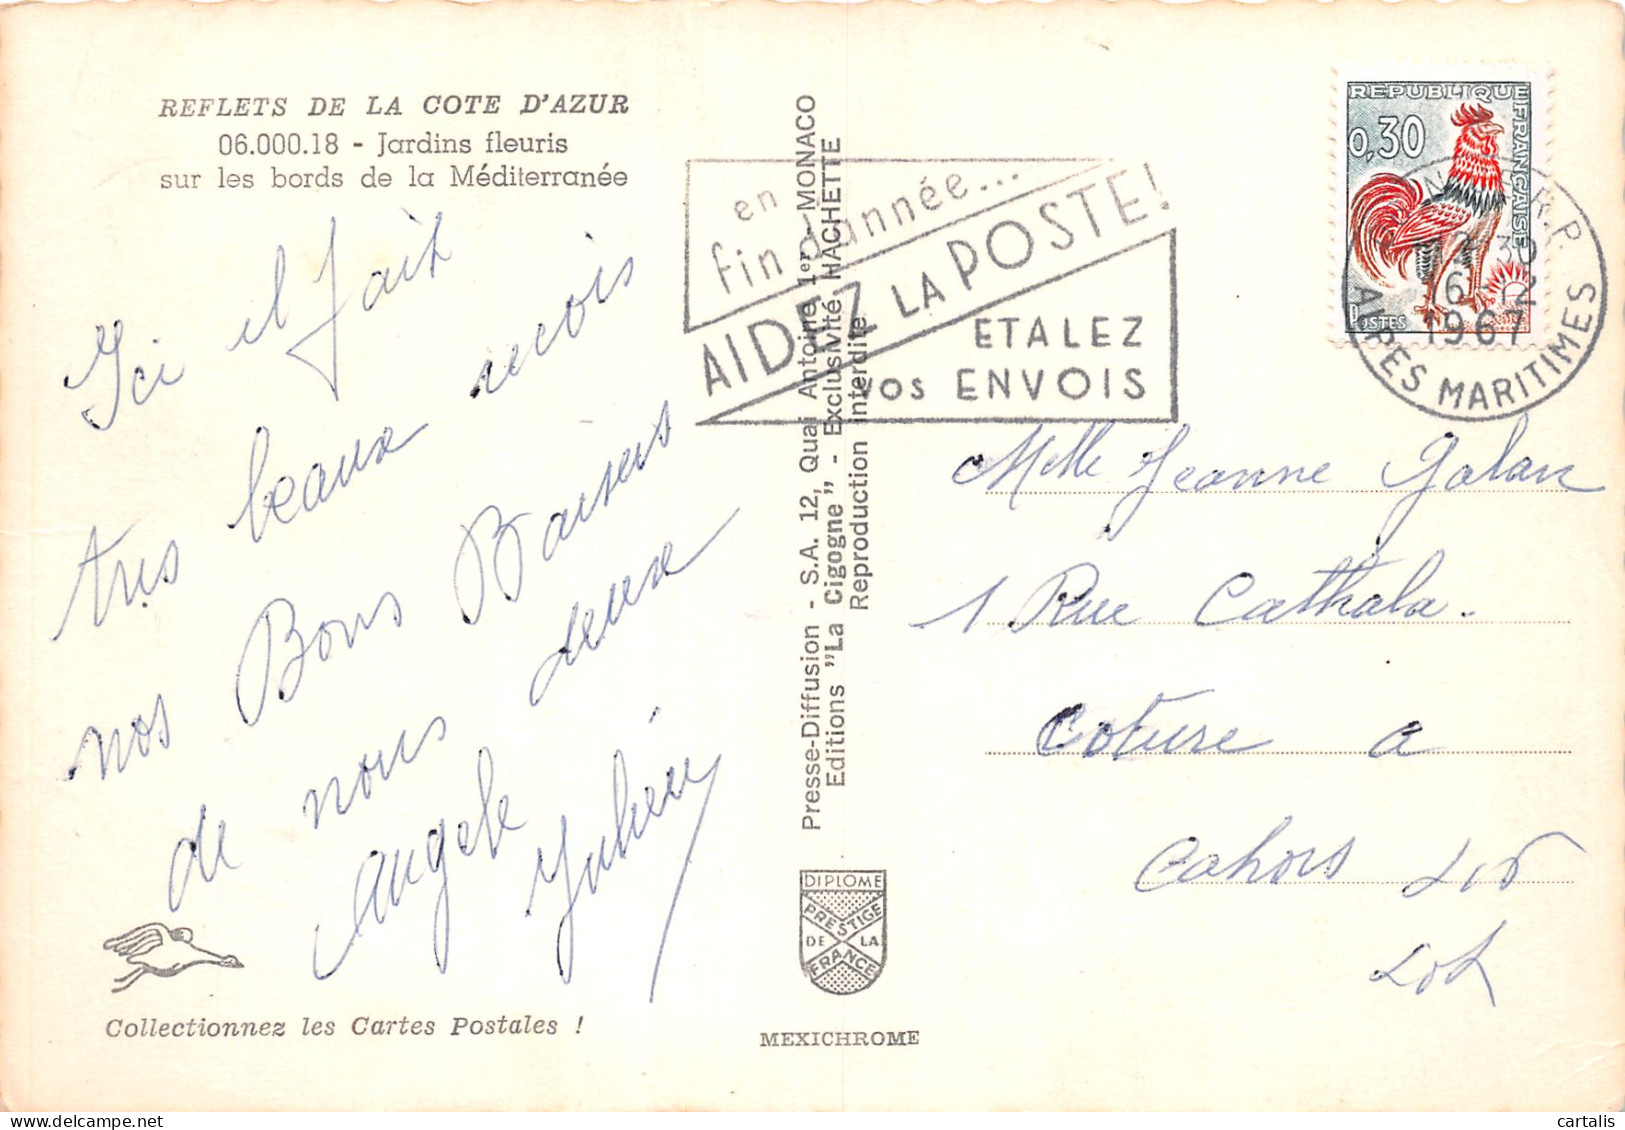 REFLETS DE LA COTE D'AZUR
06.000.18 - Jardins fleuris
sur les bords de la Méditerranée
Ici il fait
très beaux
nos Bons Baisers
de nous deux
Angele
Julien
Collectionnez les Cartes Postales !
Presse-Diffusion - S.A. 12, Quai Antoine 1er - MONACO
Editions "La Cigogne" - Exclusivité HACHETTE
Reproduction interdite
DIPLOME
PRESTIGE
DE LA
FRANCE
MEXICHROME
en
fin d'année...
AIDEZ LA POSTE!
ETALEZ
VOS ENVOIS
REPUBLIQUE FRANÇAISE
0,30
POSTES
R.P.
30
6 12
1967
ALPES MARITIMES
Melle Jeanne Galan
1 Rue Cathala.
Coture a
Cahors Lot
Lot
cartalis
delcampe.net